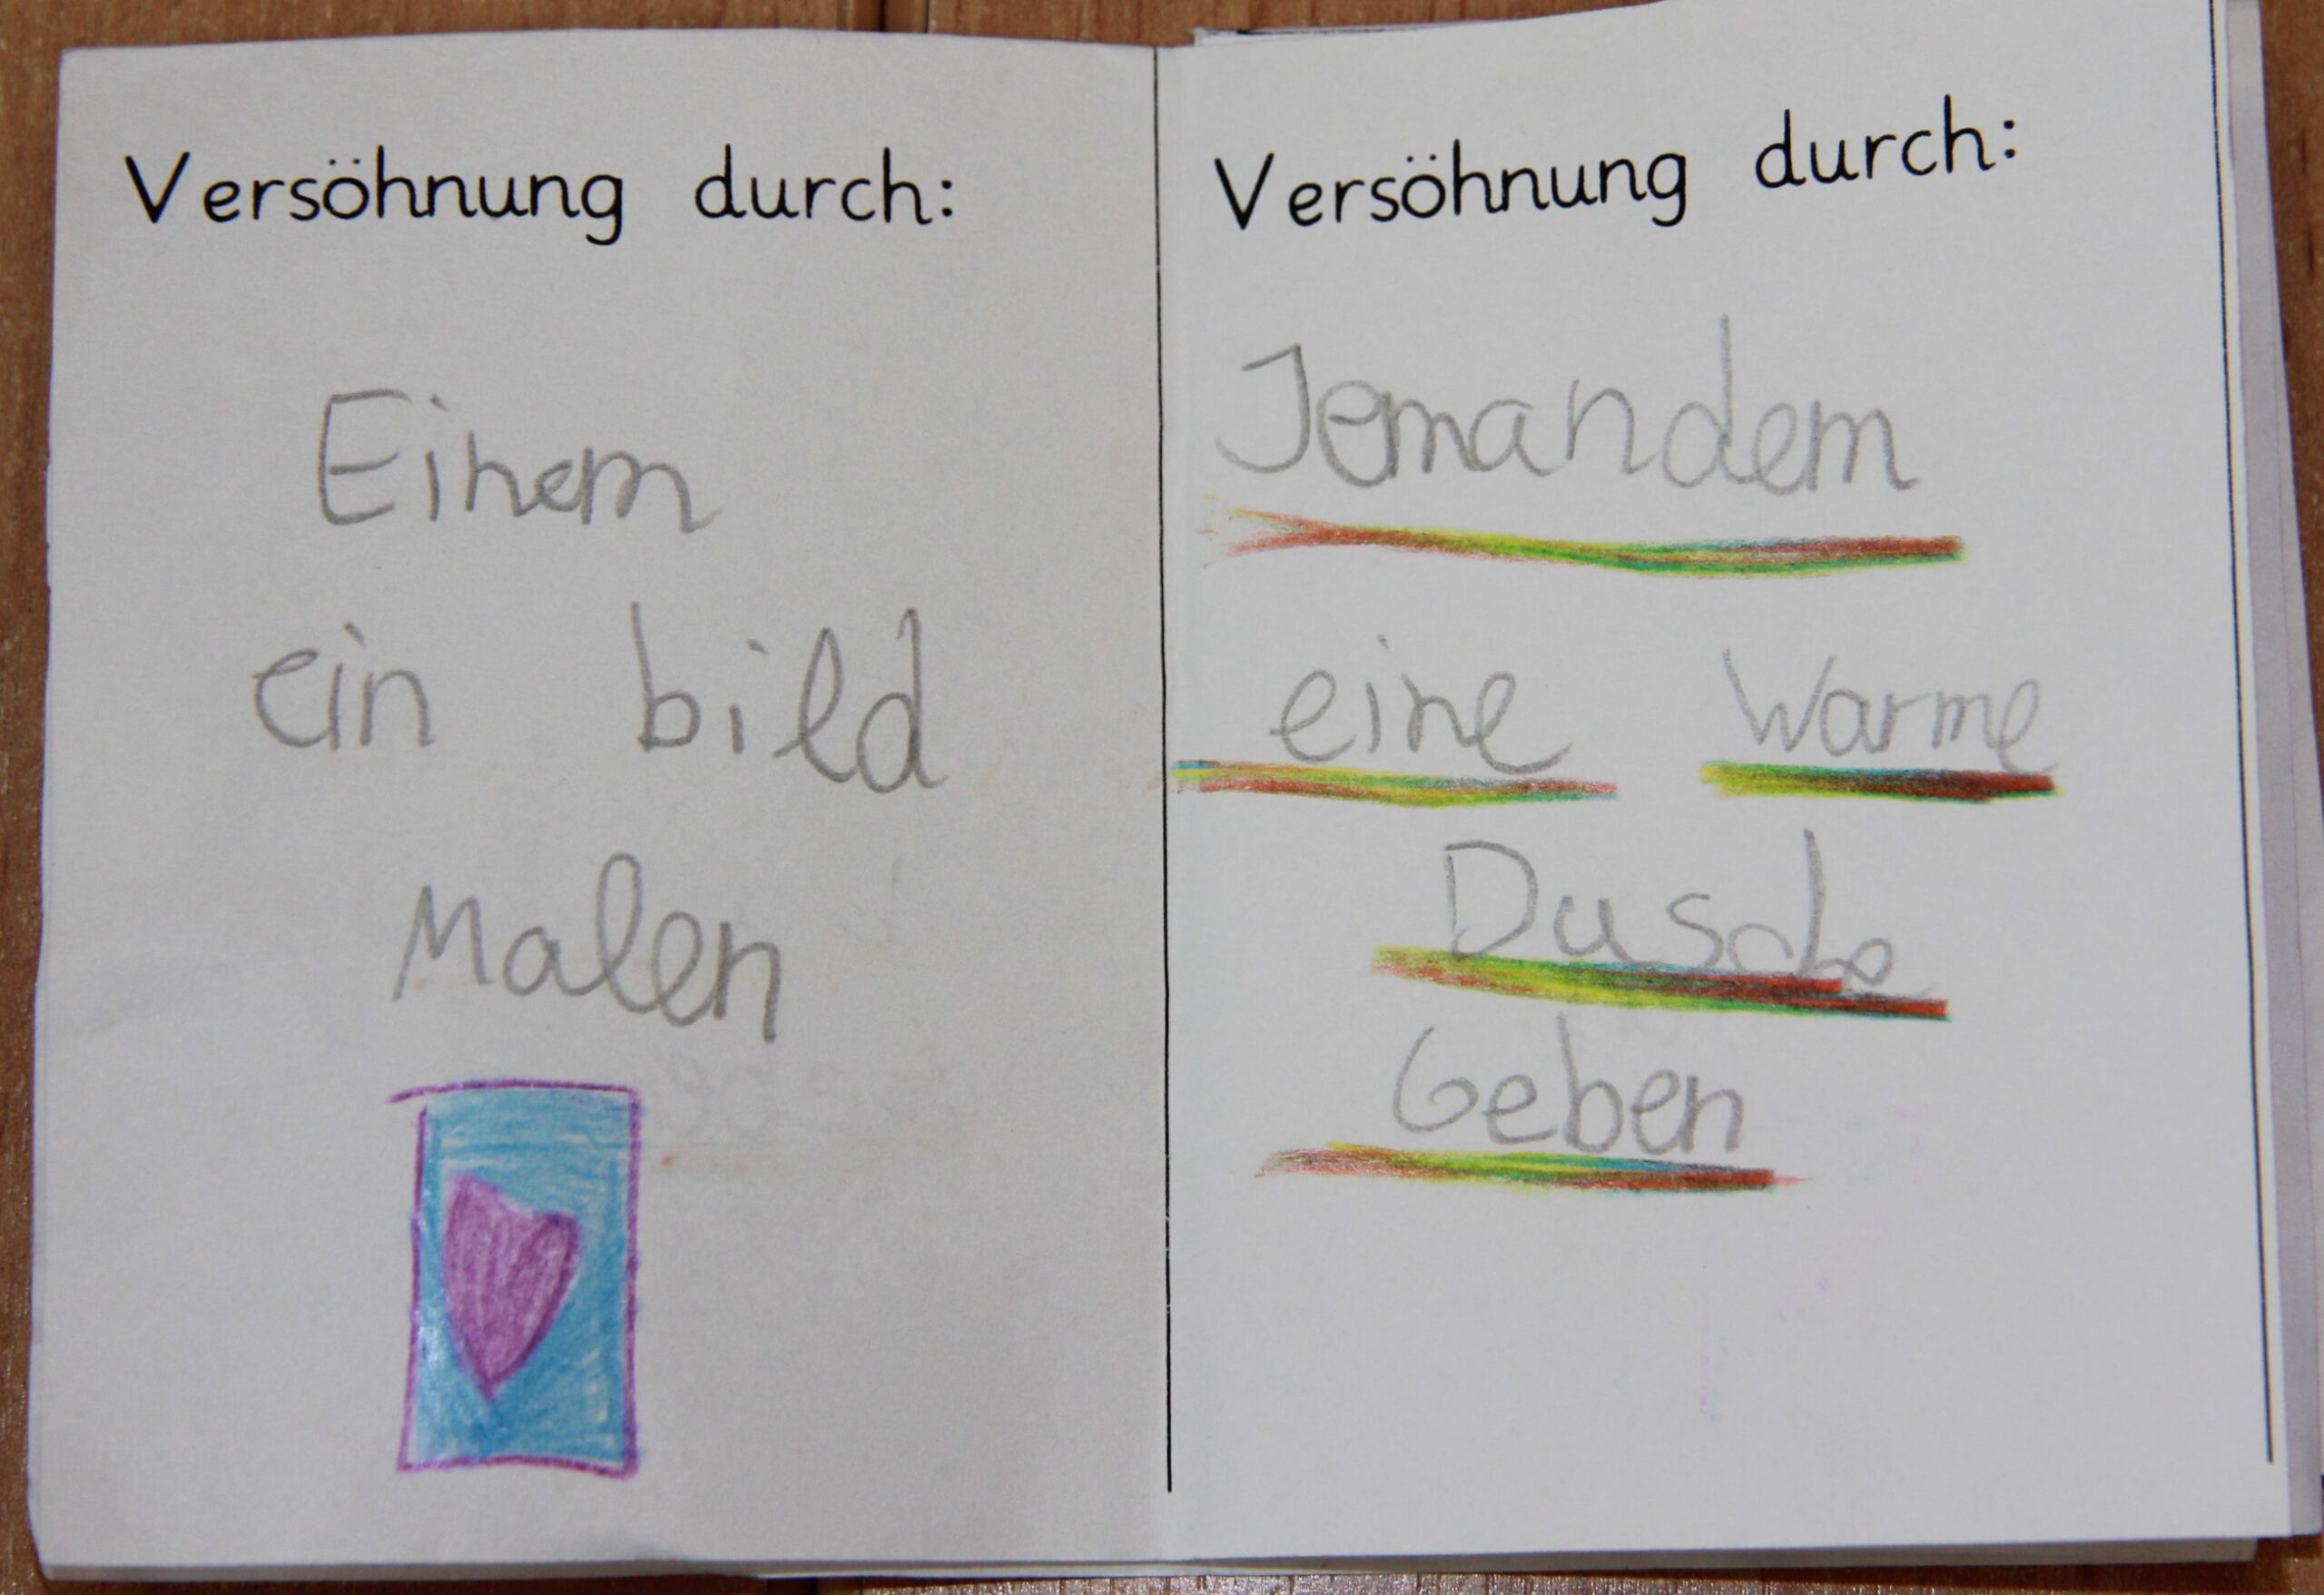 Versöhnung durch:
Einem
ein bild
Malen
Versöhnung durch:
Jemandem
eine Warme
Dusche
Geben